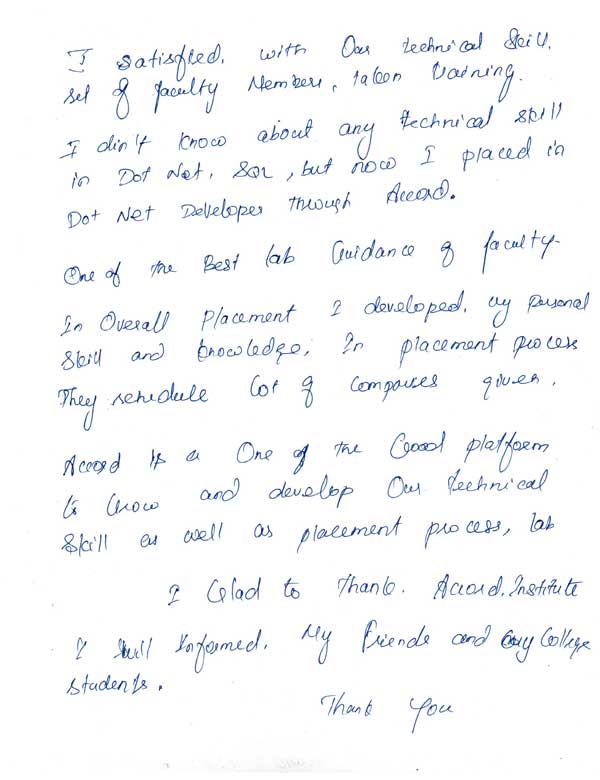 I satisfied, with Our technical Skill.
set of faculty Members, taken training.
I didn't know about any technical skill
in Dot Net, SQL, but now I placed in
Dot Net Developer through Accord.
One of the Best lab Guidance of faculty.
In Overall Placement I developed, my personal
Skill and knowledge, In placement process
They schedule lot of companies given.
Accord is a One of the Good platform
to know and develop Our technical
Skill as well as placement process, lab
I Glad to Thank. Accord. Institute
I will Informed. My friends and my College
students.
Thank You